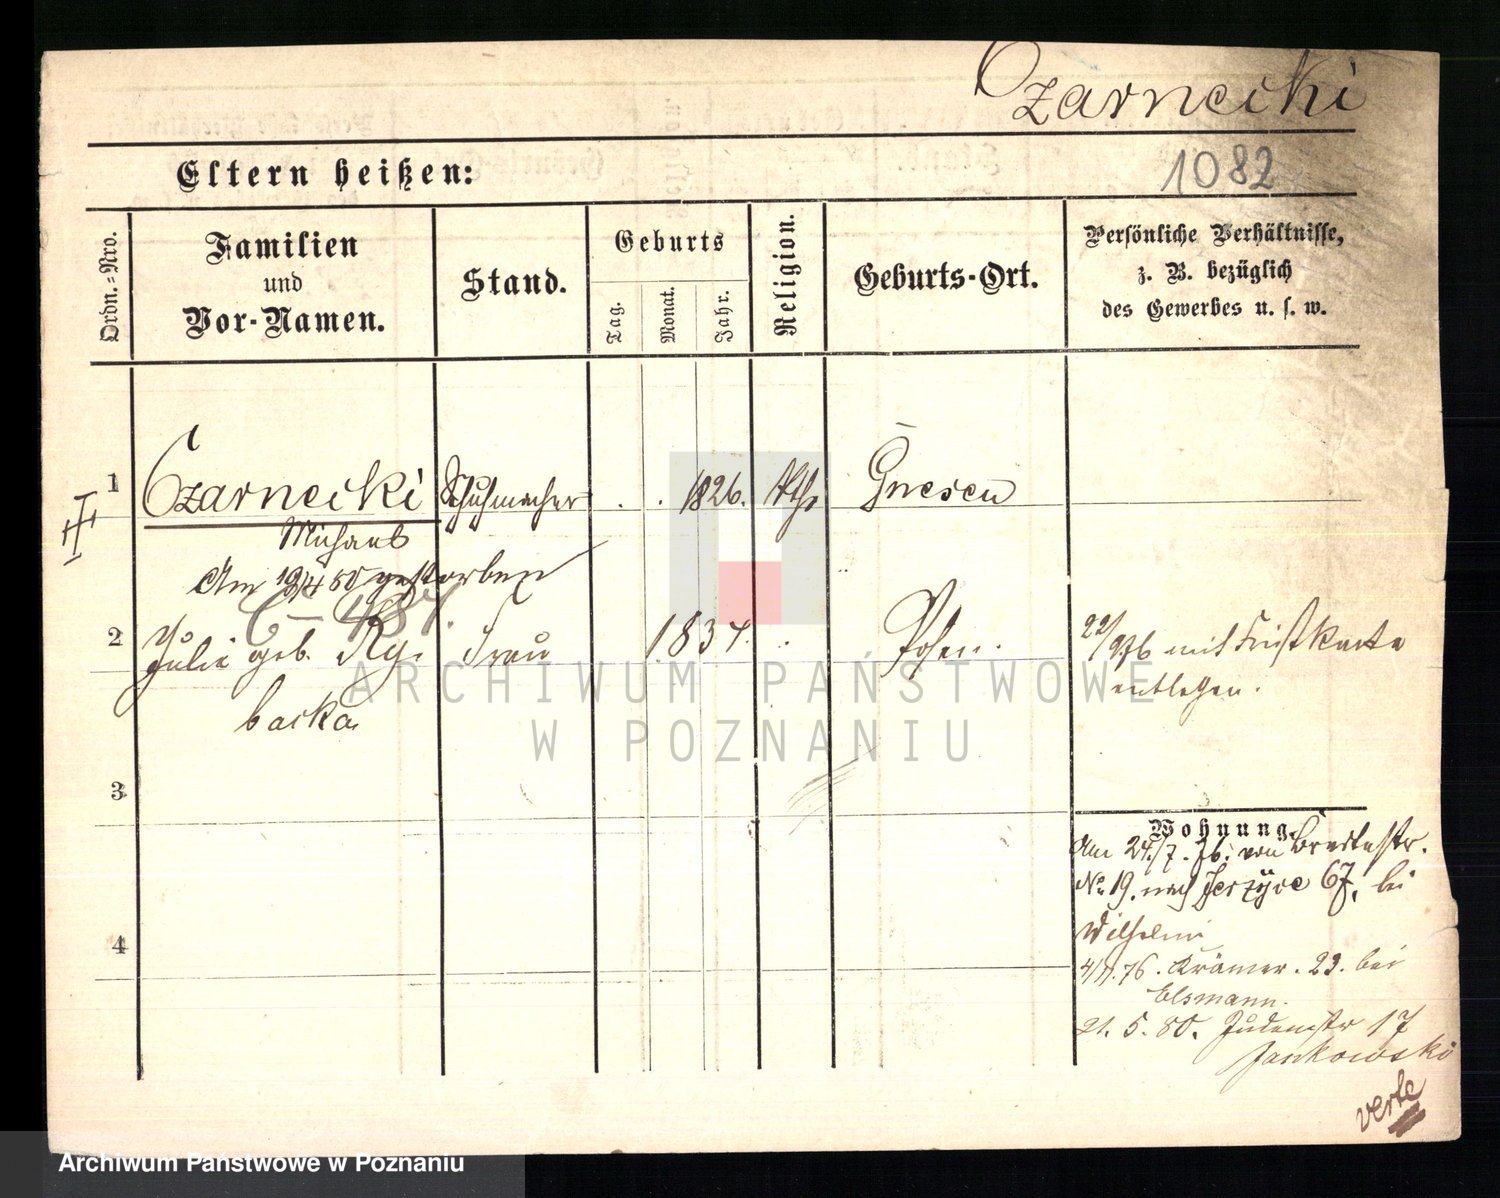 Czarnecki
1082
Eltern heißen:
Ordn.-Nro.
Familien
und
Vor-Namen.
Stand.
Geburts
Tag.
Monat.
Jahr.
Religion.
Geburts-Ort.
Persönliche Verhältnisse,
z. B. bezüglich
des Gewerbes u. s. w.
1
Czarnecki Schuhmacher . . 1826. kth. Gnesen
Michael
Am 19/4 80 gestorben
2
Julie geb. Ry- Frau 1834. Posen.
backa
22/ 9.76 mit Fristkarte
entlassen.
3
4
Wohnung.
Am 24./7.76. von Breslastr.
No 19. nach Jerzyce 67, bei
Wilhelmi
4/11.76. Krämer. 23. bei
Elsmann.
21. 5. 80. Judenstr 17
Jankowski
verte
ARCHIWUM PAŃSTWOWE
W POZNANIU
Archiwum Państwowe w Poznaniu